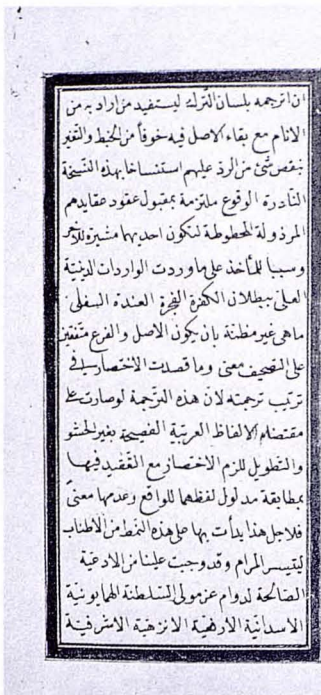 ان اترجمه بلسان الترك ليستفيد من اراد به من
الانام مع بقاء الاصل فيه خوفاً من الخبط والتغير
بنقص شئ من الرد عليهم استنساخا بهذه النسخة
النادرة الوقوع ملتزمة بمقبول عقود عقايدهم
المرذولة المحطوطة لتكون احديها مشيرة للآخر
وسببا للمأخذ على ما وردت الواردات الدينية
العلى ببطلان الكفرة الفجرة العندة السفلى
ما هى غير مظنة بان يكون الاصل والفرع متفقين
على التصحيف معنى وما قصدت الاختصار فى
ترتيب ترجمته لان هذه الترجمة لو صارت على
مقتضاء الالفاظ العربية الفصيحة بغير الحشو
والتطويل للزم الاختصار مع التقييد فيها
بمطابقة مدلول لفظها للواقع وعدمها معنىً
فلاجل هذا بدأت بها على هذه النمط من الاطناب
ليتيسر المرام وقد وجبت علينا من الادعية
الصالحة لدوام عز مولى السلطنة الهمايونية
الاسدانية الارفعية الانزهية الاشرفية